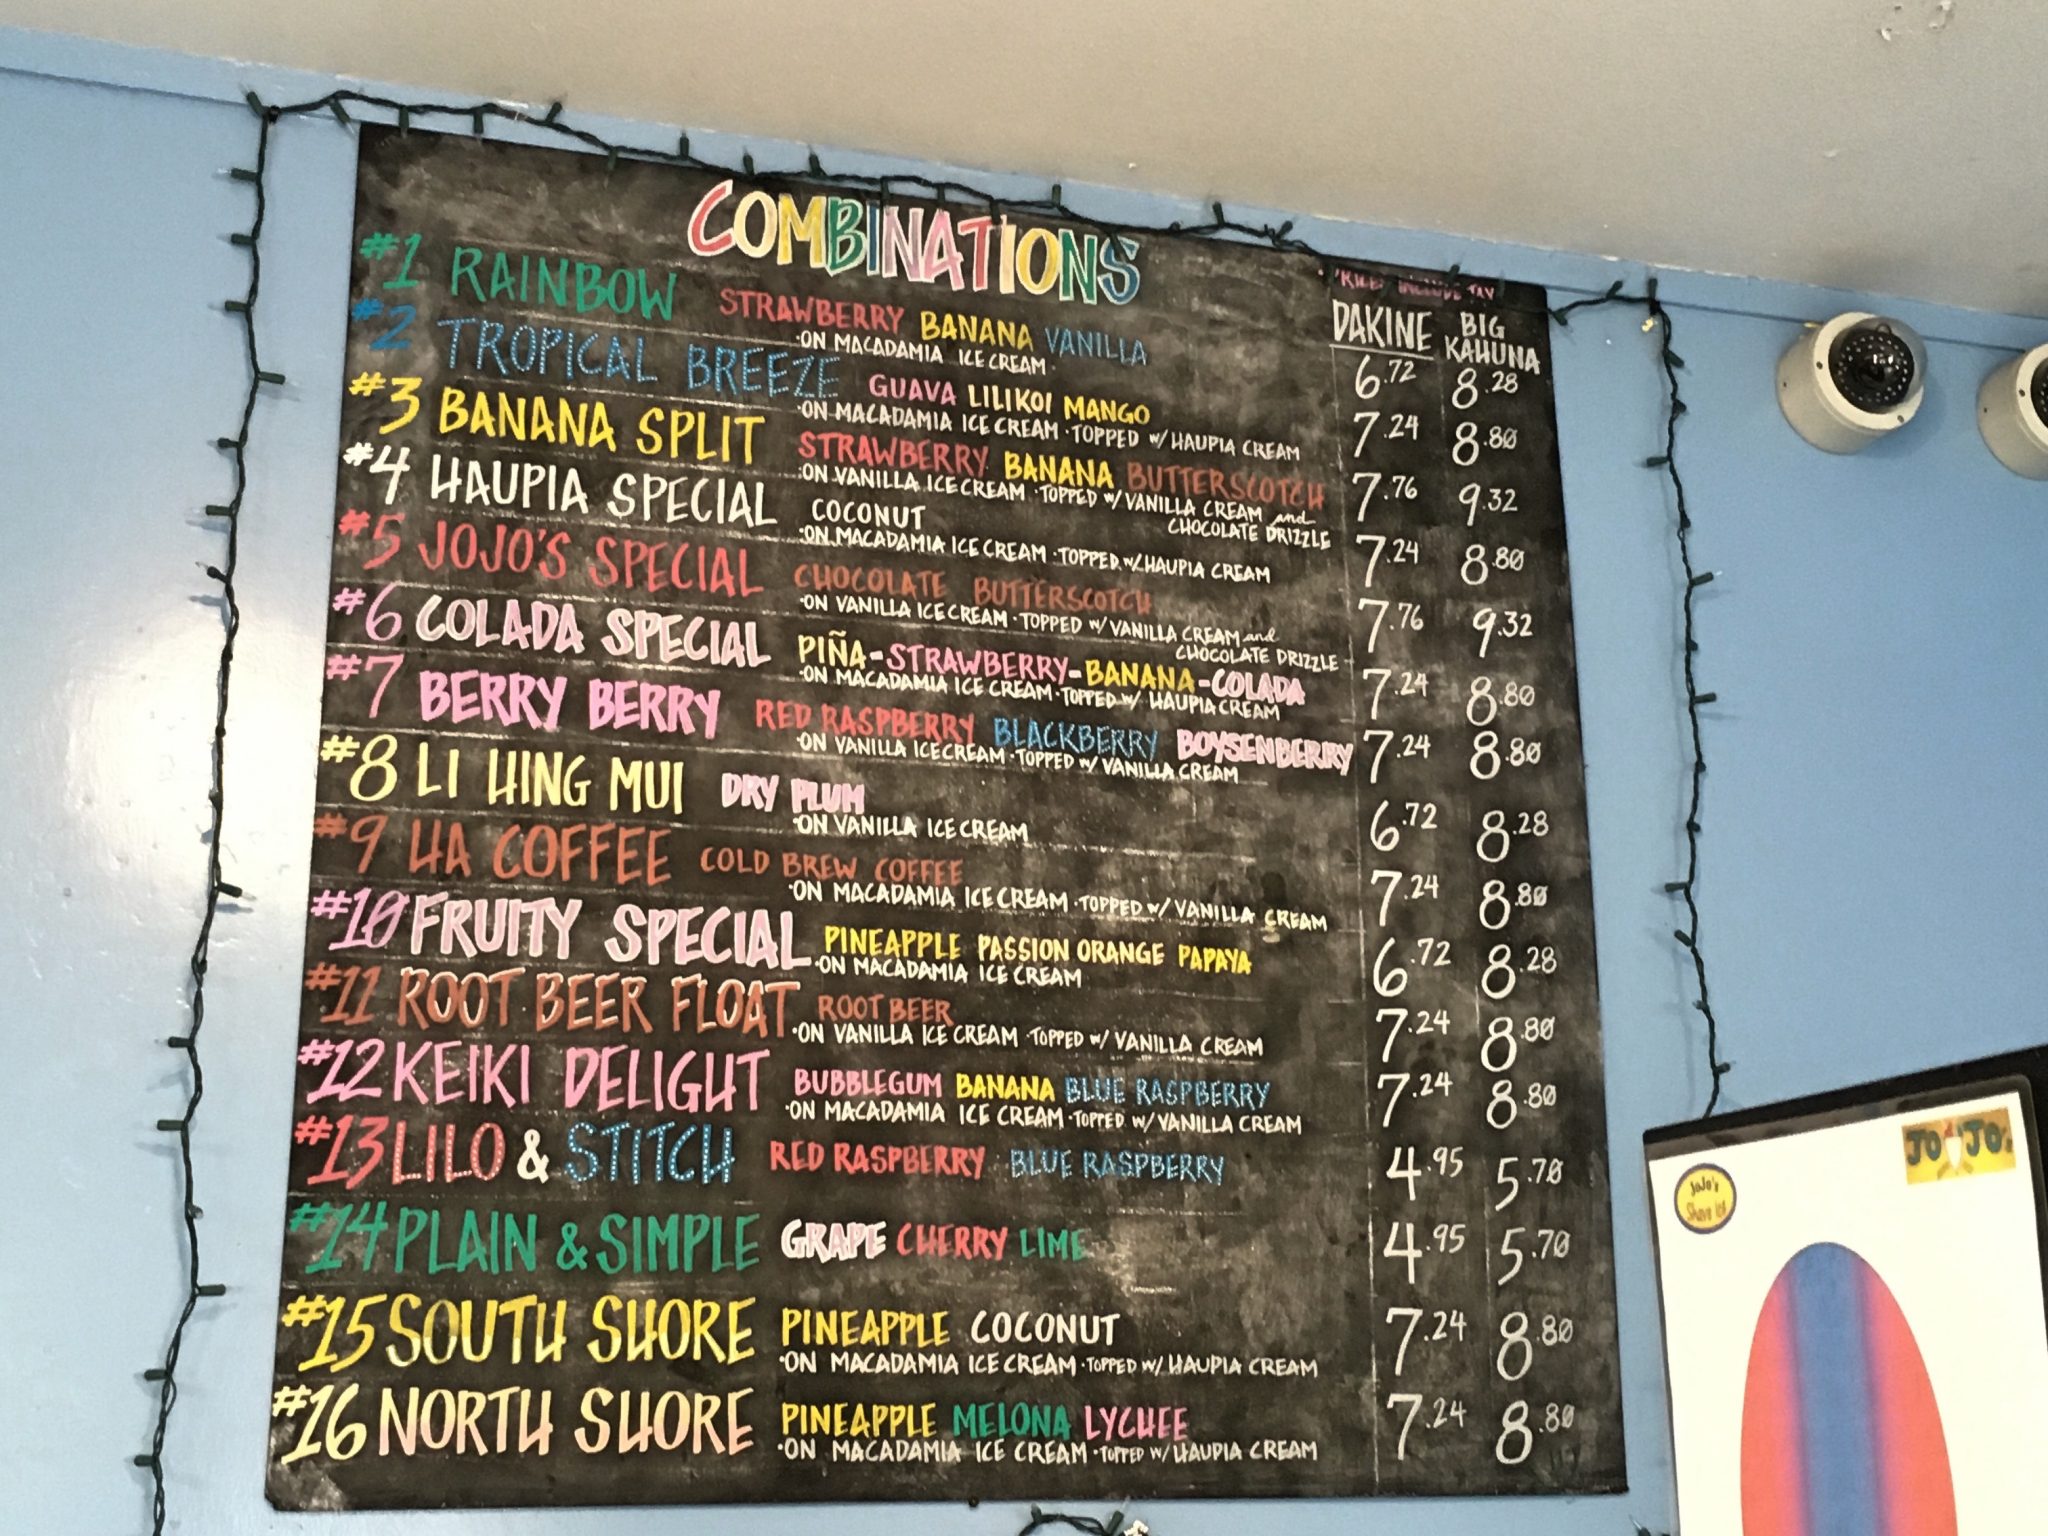 COMBINATIONS
PRICES INCLUDE TAX
DAKINE BIG KAHUNA
#1 RAINBOW STRAWBERRY BANANA VANILLA 6.72 8.28
·ON MACADAMIA ICE CREAM·
#2 TROPICAL BREEZE GUAVA LILIKOI MANGO 7.24 8.80
·ON MACADAMIA ICE CREAM·TOPPED W/ HAUPIA CREAM
#3 BANANA SPLIT STRAWBERRY BANANA BUTTERSCOTCH 7.76 9.32
·ON VANILLA ICE CREAM ·TOPPED W/ VANILLA CREAM and
CHOCOLATE DRIZZLE
#4 HAUPIA SPECIAL COCONUT 7.24 8.80
·ON MACADAMIA ICE CREAM ·TOPPED W/HAUPIA CREAM
#5 JOJO'S SPECIAL CHOCOLATE BUTTERSCOTCH 7.76 9.32
·ON VANILLA ICE CREAM ·TOPPED W/ VANILLA CREAM and
CHOCOLATE DRIZZLE
#6 COLADA SPECIAL PIÑA-STRAWBERRY-BANANA-COLADA 7.24 8.80
·ON MACADAMIA ICE CREAM·TOPPED W/ HAUPIA CREAM
#7 BERRY BERRY RED RASPBERRY BLACKBERRY BOYSENBERRY 7.24 8.80
·ON VANILLA ICE CREAM ·TOPPED W/ VANILLA CREAM
#8 LI HING MUI DRY PLUM 6.72 8.28
·ON VANILLA ICE CREAM
#9 HA COFFEE COLD BREW COFFEE 7.24 8.80
·ON MACADAMIA ICE CREAM ·TOPPED W/ VANILLA CREAM
#10 FRUITY SPECIAL PINEAPPLE PASSION ORANGE PAPAYA 6.72 8.28
·ON MACADAMIA ICE CREAM
#11 ROOT BEER FLOAT ROOT BEER 7.24 8.80
·ON VANILLA ICE CREAM ·TOPPED W/ VANILLA CREAM
#12 KEIKI DELIGHT BUBBLEGUM BANANA BLUE RASPBERRY 7.24 8.80
·ON MACADAMIA ICE CREAM ·TOPPED W/ VANILLA CREAM
#13 LILO & STITCH RED RASPBERRY BLUE RASPBERRY 4.95 5.70
#14 PLAIN & SIMPLE GRAPE CHERRY LIME 4.95 5.70
#15 SOUTH SHORE PINEAPPLE COCONUT 7.24 8.80
·ON MACADAMIA ICE CREAM ·TOPPED W/ HAUPIA CREAM
#16 NORTH SHORE PINEAPPLE MELONA LYCHEE 7.24 8.80
·ON MACADAMIA ICE CREAM ·TOPPED W/ HAUPIA CREAM
JOJO's
JoJo's
Shave Ice